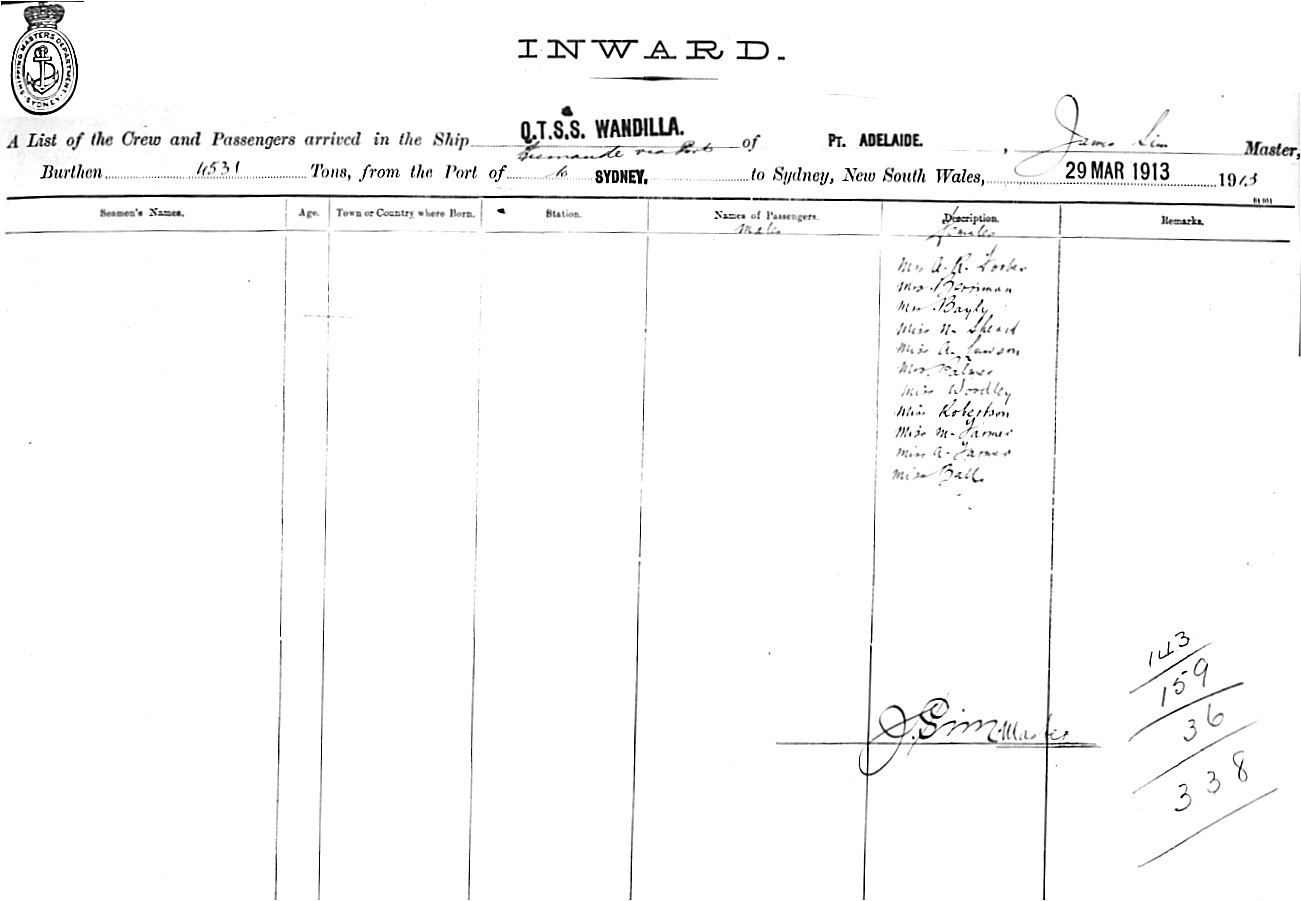 SHIPPING MASTERS DEPARTMENT. SYDNEY
INWARD.
A List of the Crew and Passengers arrived in the Ship Q.T.S.S. WANDILLA. of PT. ADELAIDE. , James Sim Master,
Burthen 4531 Tons, from the Port of Fremantle via Ports to SYDNEY. to Sydney, New South Wales, 29 MAR 1913 1913
Seamen's Names. Age. Town or Country where Born. Station. Names of Passengers. Description. Remarks.
Males Females
Mrs A. R. Forbes
Mrs Berriman
Mrs Bayly
Miss N. Sheard
Miss A. Lawson
Mrs Palmer
Miss Woodley
Miss Robertson
Miss M. Farmer
Miss A. Farmer
Miss Ball
143
159
36
338
J. Sim Master